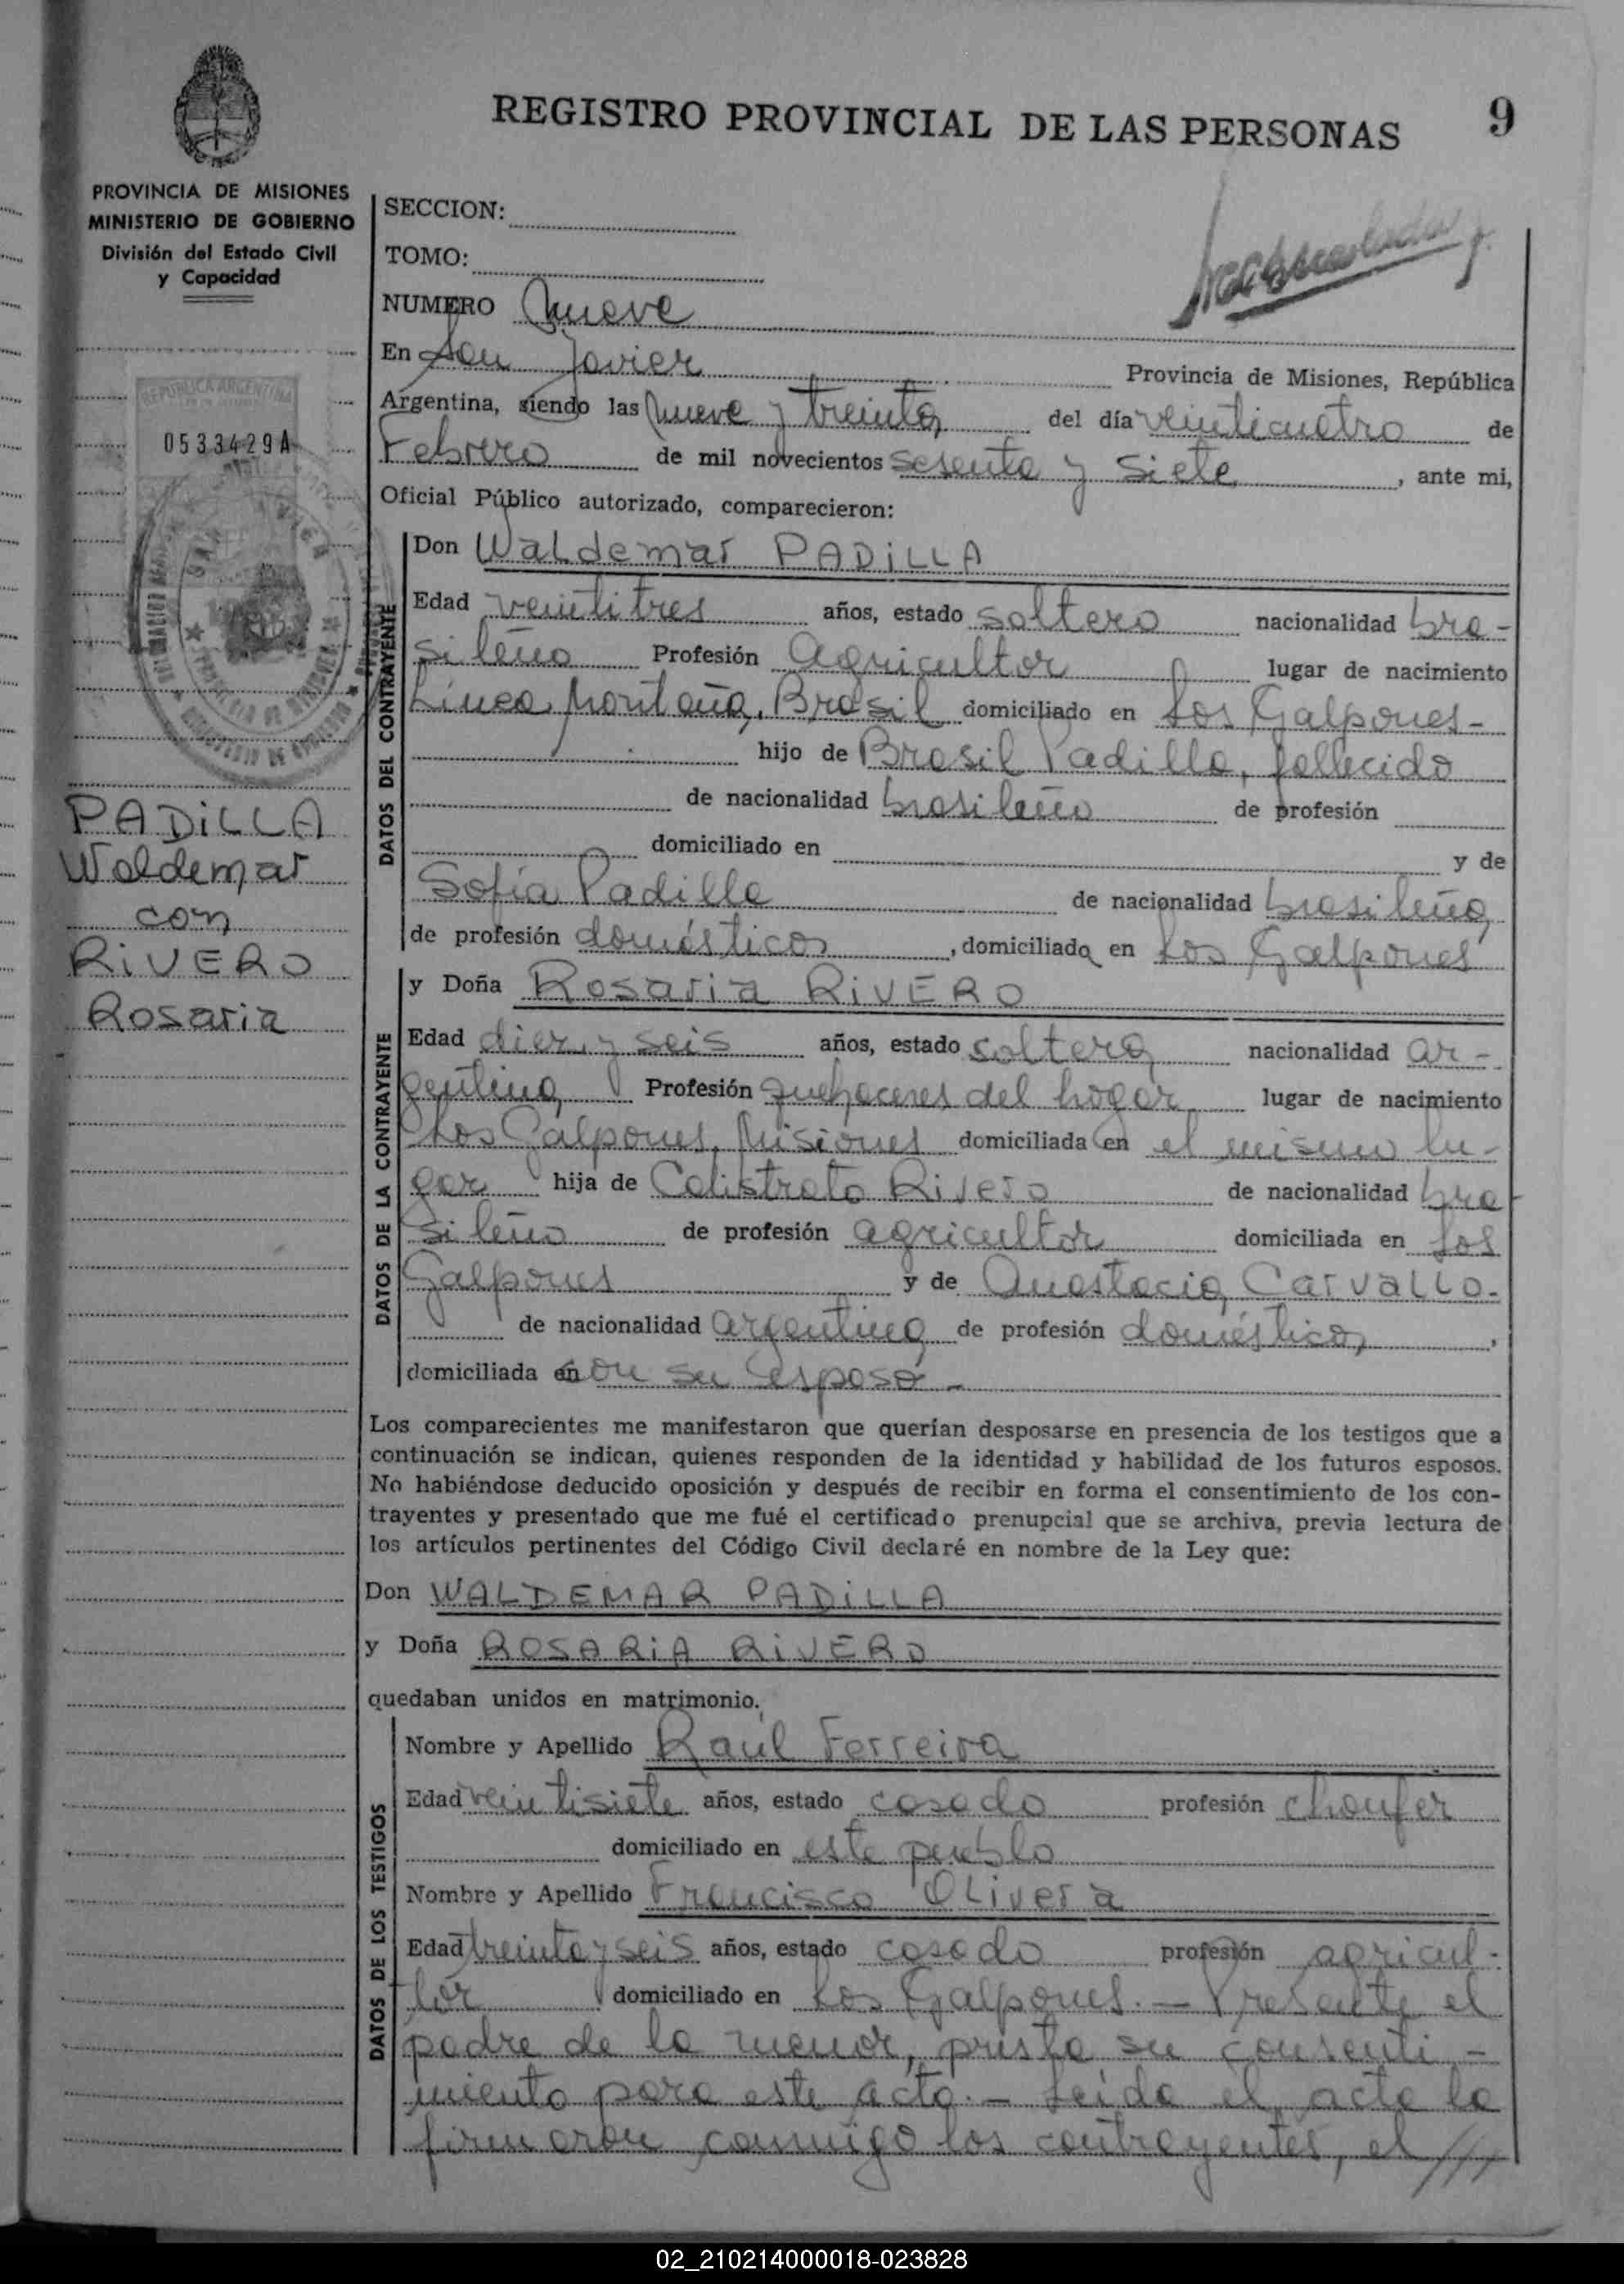 REGISTRO PROVINCIAL DE LAS PERSONAS 9
PROVINCIA DE MISIONES
MINISTERIO DE GOBIERNO
División del Estado Civil
y Capacidad
REPUBLICA ARGENTINA
0533429A
PADILLA
Waldemar
con
RIVERO
Rosaria
SECCION:
TOMO:
NUMERO Nueve
En San Javier Provincia de Misiones, República
Argentina, siendo las nueve y treinta del día veinticuatro de
Febrero de mil novecientos sesenta y siete, ante mi,
Oficial Público autorizado, comparecieron:
DATOS DEL CONTRAYENTE
Don Waldemar PADILLA
Edad veintitres años, estado soltero nacionalidad bra-
sileño Profesión agricultor lugar de nacimiento
Línea Montaña, Brasil domiciliado en Los Galpones-
hijo de Brasil Padilla, fallecido
de nacionalidad brasileño de profesión
domiciliado en y de
Sofía Padilla de nacionalidad brasileña,
de profesión domésticos, domiciliada en Los Galpones
DATOS DE LA CONTRAYENTE
y Doña Rosaria RIVERO
Edad diez y seis años, estado soltera nacionalidad ar-
gentina Profesión quehaceres del hogar lugar de nacimiento
Los Galpones, Misiones domiciliada en el mismo lu-
gar hija de Calistrato Rivero de nacionalidad bra
sileño de profesión agricultor domiciliada en Los
Galpones y de Anastacia Carvallo-
de nacionalidad argentina de profesión doméstica,
domiciliada con su esposo-
Los comparecientes me manifestaron que querían desposarse en presencia de los testigos que a
continuación se indican, quienes responden de la identidad y habilidad de los futuros esposos.
No habiéndose deducido oposición y después de recibir en forma el consentimiento de los con-
trayentes y presentado que me fué el certificado prenupcial que se archiva, previa lectura de
los artículos pertinentes del Código Civil declaré en nombre de la Ley que:
Don WALDEMAR PADILLA
y Doña ROSARIA RIVERO
quedaban unidos en matrimonio.
DATOS DE LOS TESTIGOS
Nombre y Apellido Raúl Ferreira
Edad veintisiete años, estado casado profesión choufer
domiciliado en este pueblo
Nombre y Apellido Francisco Olivera
Edad treinta y seis años, estado casado profesión agricul-
tor domiciliado en Los Galpones.- Presente el
padre de la menor, presta su consenti-
miento para este acto.- Leída el acta la
firmaron conmigo los contrayentes, el ///
02_210214000018-023828